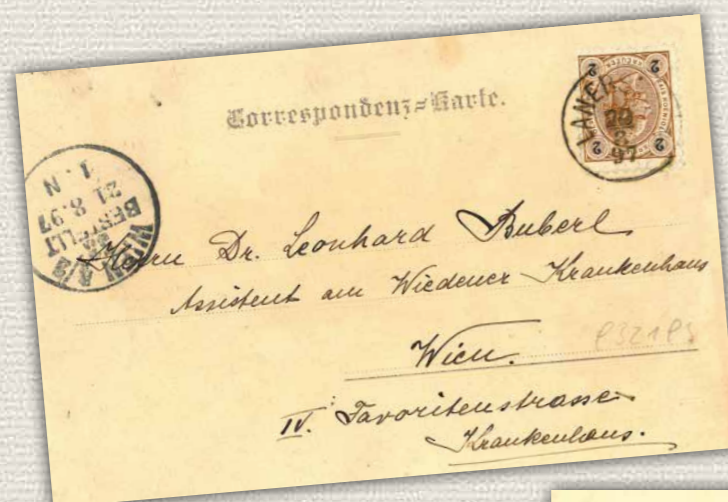 Correspondenz=Karte.
2 2
2 2
20
8
97
WIEN
BESTELLT
21 8.97
1. N
Herrn Dr. Leonhard Buberl
Assistent am Wiedener Krankenhaus
Wien.
IV. Favoritenstrasse
Krankenhaus.